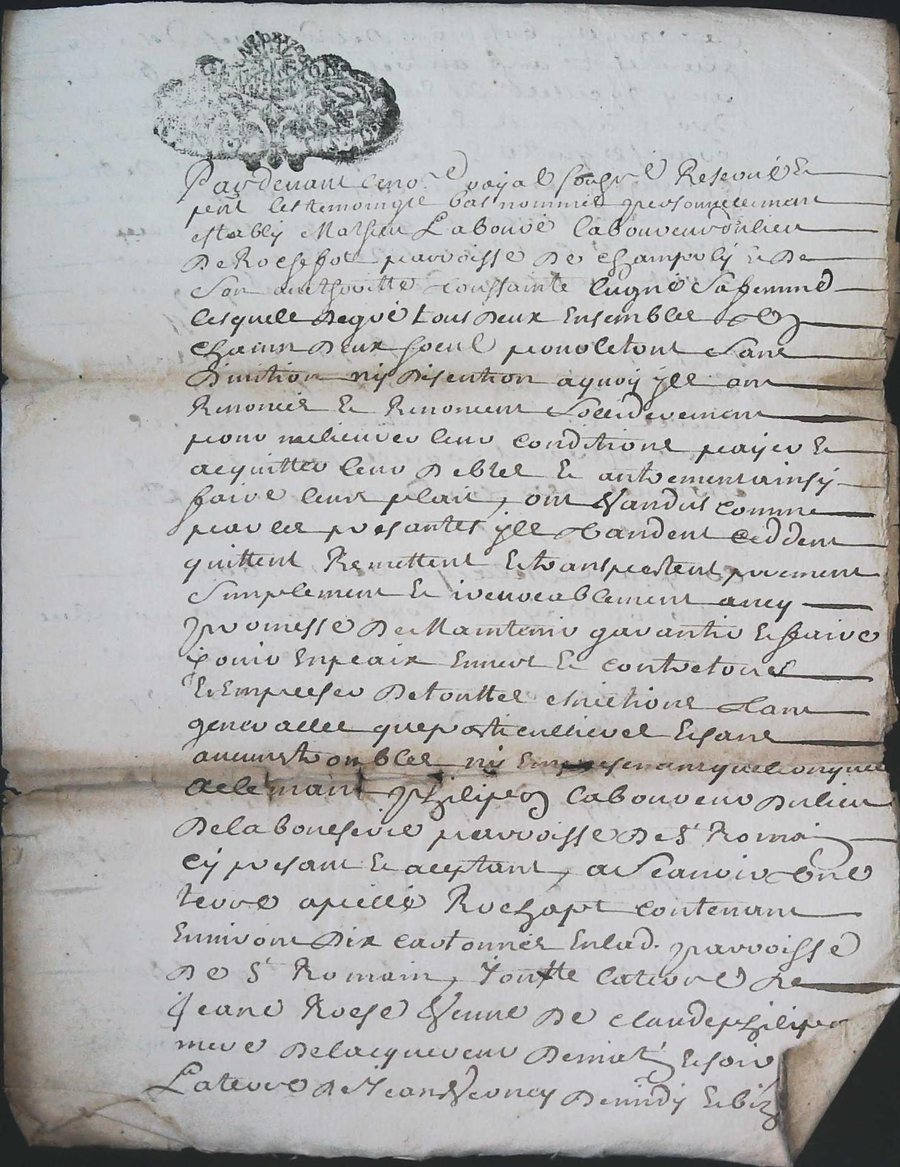 Pardevant le no.re royal soubsigné Reservé et
pent les temoingts bas nommés personnellement
estably Mathieu Labouré laboureur du lieu
de Rochefot parroisse de Champoly et de
son authoritté Toussainte Cugne sa femme
lesquels de gré tous deux ensembles et
chacun deux seul pour le tout sans
divition ny discution a quoy jls ont
Renoncés et Renoncent sollidairement
pour melieurer leur conditions payer et
acquitter leur debtes et autrement ainsy
faire leurs plait, ont vandus comme
par les presantes jls vandent ceddent
quittent Remettent et transportent purement
simplement et irevocablement avec
promesse de maintenir garantir et faire
jouir en paix envers et contre tous
et Empescher de touttes evictions tant
generalles que particullieres et sans
aucuns troubles ny Empeschemans quelconques
a Clemant philipon laboureur du lieu
de la boucherie parroisse de St Romain
cy presant et aceptant, a scavoir une
terre apellé Rochapt contenant
Environ dix cartonnés en lad. parroisse
de St Romain, joutte la terre de
Jeane veuve de Claude philipon
mere de lacquereur de mat. et soir
La terre de Jean de midy et bize